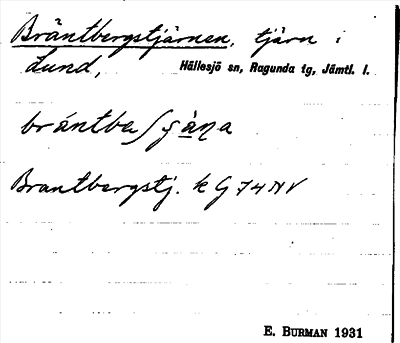 Bräntbergstjärnen, tjärn i
Lund, Hällesjö sn, Ragunda tg, Jämtl. l.
Brantbergstj. k G 74 NV
E. BURMAN 1931